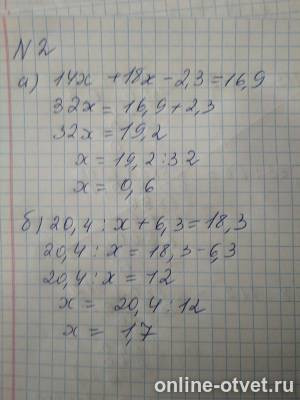 N 2
а) 14x + 18x - 2,3 = 16,9
32x = 16,9 + 2,3
32x = 19,2
x = 19,2 : 32
x = 0,6
б) 20,4 : x + 6,3 = 18,3
20,4 : x = 18,3 - 6,3
20,4 : x = 12
x = 20,4 : 12
x = 1,7
online-otvet.ru